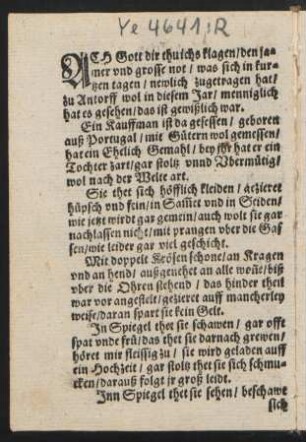 Ye 4641:R
ACH Gott dir thu ichs klagen / den ja-
mer vnd grosse not / was sich in kur-
tzen tagen / newlich zugetragen hat /
zu Antorff wol in diesem Jar / menniglich
hat es gesehen / das ist gewißlich war.
Ein Kauffman ist da gesessen / geboren
auß Portugal / mit Gütern wol gemessen /
hat ein Ehelich Gemahl / bey jhr hat er ein
Tochter zart / gar stoltz vnnd Vbermütig /
wol nach der Welt art.
Sie thet sich höfflich kleiden / gezieret
hüpsch vnd fein / in Sam̃et vnd in Seiden /
wie jetzt wirdt gar gemein / auch wolt sie gar
nachlassen nicht / mit prangen vber die Gas-
sen / wie leider gar viel geschicht.
Mit doppelt Krösen schone / an Kragen
vnd an hend / außgenehet an alle / biß
vber die Ohren stehend / das hinder theil
war vor angestelt / gezieret auff mancherley
weise / daran spart sie kein Gelt.
In Spiegel thet sie schawen / gar offt
spat vnd frü / das thet sie darnach grewen /
höret mir fleissig zu / sie wird geladen auff
ein Hochzeit / gar stoltz thet sie sich schmu-
cken / darauß folgt jr groß leidt.
Inn Spiegel thet sie sehen / beschawt
sich